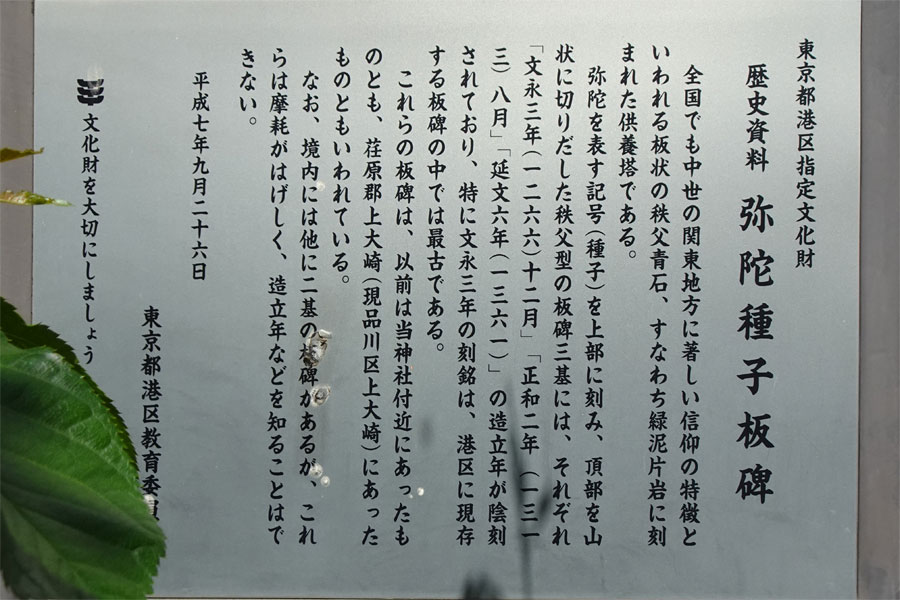 東京都港区指定文化財
歴史資料 弥陀種子板碑
全国でも中世の関東地方に著しい信仰の特徴と
いわれる板状の秩父青石、すなわち緑泥片岩に刻
まれた供養塔である。
弥陀を表す記号(種子)を上部に刻み、頂部を山
状に切りだした秩父型の板碑三基には、それぞれ
「文永三年(一二六六)十二月」「正和二年(一三一
三)八月」「延文六年(一三六一)」の造立年が陰刻
されており、特に文永三年の刻銘は、港区に現存
する板碑の中では最古である。
これらの板碑は、以前は当神社付近にあったも
のとも、荏原郡上大崎(現品川区上大崎)にあった
ものともいわれている。
なお、境内には他に二基の板碑があるが、これ
らは摩耗がはげしく、造立年などを知ることはで
きない。
平成七年九月二十六日
東京都港区教育委員
文化財を大切にしましょう